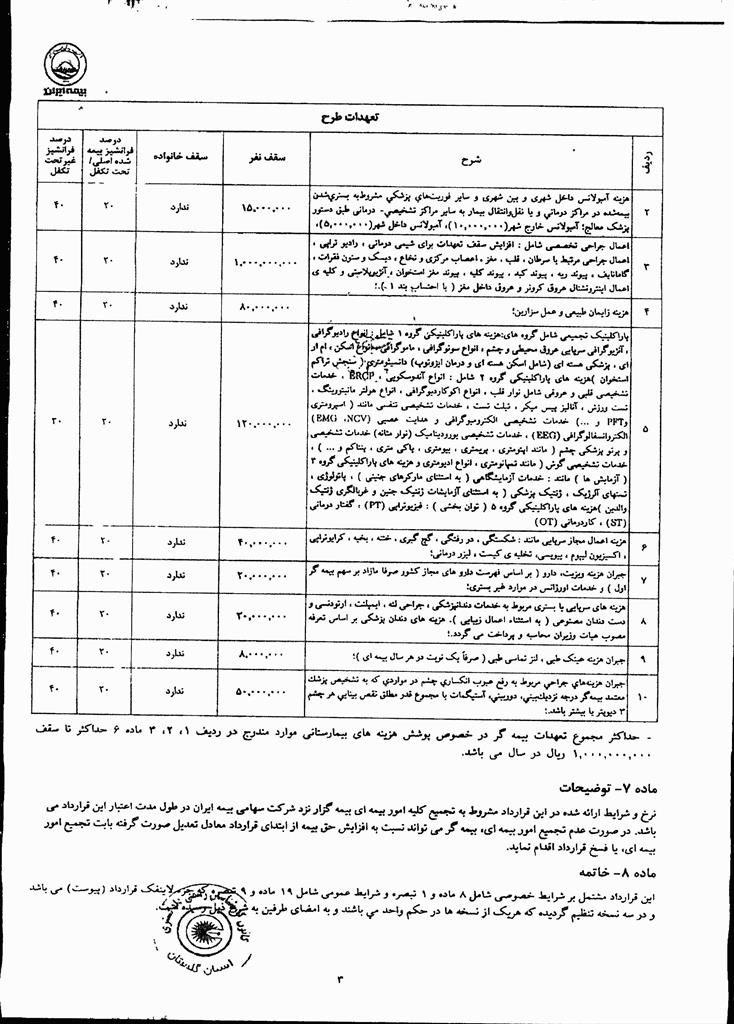 بیمه ایران
تعهدات طرح
ردیف
شرح
سقف نفر
سقف خانواده
درصد
فرانشیز بیمه
شده اصلی/
تحت تکفل
درصد
فرانشیز
غیرتحت
تکفل
۲
هزینه آمبولانس داخل شهری و بین شهری و سایر فوریت‌های پزشکی مشروط به بستری‌شدن
بیمه‌شده در مراکز درمانی و یا نقل‌وانتقال بیمار به سایر مراکز تشخیصی- درمانی طبق دستور
پزشک معالج؛ آمبولانس خارج شهر(۱۰,۰۰۰,۰۰۰)، آمبولانس داخل شهر(۵,۰۰۰,۰۰۰)،
۱۵,۰۰۰,۰۰۰
ندارد
۲۰
۴۰
۳
اعمال جراحی تخصصی شامل : افزایش سقف تعهدات برای شیمی درمانی ، رادیو تراپی ،
اعمال جراحی مرتبط با سرطان ، قلب ، مغز ، اعصاب مرکزی و نخاع ، دیسک و ستون فقرات ،
گامانایف ، پیوند ریه ، پیوند کبد ، پیوند کلیه ، پیوند مغز استخوان ، آنژیوپلاستی و کلیه ی
اعمال اینترونشنال عروق کرونر و عروق داخل مغز ( با احتساب بند ۱ ).؛
۱,۰۰۰,۰۰۰,۰۰۰
ندارد
۲۰
۴۰
۴
هزینه زایمان طبیعی و عمل سزارین؛
۸۰,۰۰۰,۰۰۰
ندارد
۲۰
۴۰
۵
پاراکلینیک تجمیعی شامل گروه های:هزینه های پاراکلینیکی گروه ۱ شامل : انواع رادیوگرافی
، آنژیوگرافی سرپایی عروق محیطی و چشم ، انواع سونوگرافی ، ماموگرافی، انواع اسکن، ام ار
ای ، پزشکی هسته ای (شامل اسکن هسته ای و درمان ایزوتوپ) دانسیتومتری ( سنجش تراکم
استخوان )هزینه های پاراکلینیکی گروه ۲ شامل : انواع آندوسکوپی ، ERCP ، خدمات
تشخیصی قلبی و عروقی شامل نوار قلب ، انواع اکوکاردیوگرافی ، انواع هولتر مانیتورینگ ،
تست ورزش ، آنالیز پیس میکر ، تیلت تست ، خدمات تشخیصی تنفسی مانند ( اسپرومتری
وPFT و ...) خدمات تشخیصی الکترومیوگرافی و هدایت عصبی (EMG ،NCV)
الکتروانسفالوگرافی (EEG) ، خدمات تشخیصی یورودینامیک (نوار مثانه) خدمات تشخیصی
و پرتو پزشکی چشم ( مانند اپتومتری ، پریمتری ، بیومتری ، پاکی متری ، پنتاکم و ... ) ،
خدمات تشخیصی گوش ( مانند تمپانومتری ، انواع ادیومتری و هزینه های پاراکلینیکی گروه ۳
( آزمایش ها ) مانند : خدمات آزمایشگاهی ( به استثنای مارکرهای جنینی ) ، پاتولوژی ،
تستهای آلرژیک ، ژنتیک پزشکی ( به استثنای آزمایشات ژنتیک جنین و غربالگری ژنتیک
والدین )هزینه های پاراکلینیکی گروه ۵ ( توان بخشی ) : فیزیوتراپی (PT) ، گفتار درمانی
(ST) ، کاردرمانی (OT)
۱۲۰,۰۰۰,۰۰۰
ندارد
۲۰
۳۰
۶
هزینه اعمال مجاز سرپایی مانند : شکستگی ، در رفتگی ، گچ گیری ، ختنه ، بخیه ، کرایوتراپی
، اکسیزیون لیپوم ، بیوپسی، تخلیه ی کیست ، لیزر درمانی؛
۴۰,۰۰۰,۰۰۰
ندارد
۲۰
۴۰
۷
جبران هزینه ویزیت، دارو ( بر اساس فهرست دارو های مجاز کشور صرفا مازاد بر سهم بیمه گر
اول ) و خدمات اورژانس در موارد غیر بستری؛
۲۰,۰۰۰,۰۰۰
ندارد
۲۰
۴۰
۸
هزینه های سرپایی یا بستری مربوط به خدمات دندانپزشکی ، جراحی لثه ، ایمپلنت ، ارتودنسی و
دست دندان مصنوعی ( به استثناء اعمال زیبایی ). هزینه های دندان پزشکی بر اساس تعرفه
مصوب هیات وزیران محاسبه و پرداخت می گردد.؛
۳۰,۰۰۰,۰۰۰
ندارد
۲۰
۴۰
۹
جبران هزینه عینک طبی ، لنز تماسی طبی ( صرفاً یک نوبت در هر سال بیمه ای )؛
۸,۰۰۰,۰۰۰
ندارد
۲۰
۴۰
۱۰
جبران هزینه‌های جراحی مربوط به رفع عیوب انکساری چشم در مواردی که به تشخیص پزشک
معتمد بیمه‌گر درجه نزدیک‌بینی، دوربینی، آستیگمات یا مجموع قدر مطلق نقص بینایی هر چشم
۳ دیوپتر یا بیشتر باشد.؛
۵۰,۰۰۰,۰۰۰
ندارد
۲۰
۴۰
- حداکثر مجموع تعهدات بیمه گر در خصوص پوشش هزینه های بیمارستانی موارد مندرج در ردیف ۱، ۲، ۳ ماده ۶ حداکثر تا سقف
۱,۰۰۰,۰۰۰,۰۰۰ ریال در سال می باشد.
ماده ۷- توضیحات
نرخ و شرایط ارائه شده در این قرارداد مشروط به تجمیع کلیه امور بیمه ای بیمه گزار نزد شرکت سهامی بیمه ایران در طول مدت اعتبار این قرارداد می
باشد. در صورت عدم تجمیع امور بیمه ای، بیمه گر می تواند نسبت به افزایش حق بیمه از ابتدای قرارداد معادل تعدیل صورت گرفته بابت تجمیع امور
بیمه ای، یا فسخ قرارداد اقدام نماید.
ماده ۸- خاتمه
این قرارداد مشتمل بر شرایط خصوصی شامل ۸ ماده و ۱ تبصره و شرایط عمومی شامل ۱۹ ماده و ۹ تبصره که جزء لاینفک قرارداد (پیوست) می باشد
و در سه نسخه تنظیم گردیده که هریک از نسخه ها در حکم واحد می باشند و به امضای طرفین به شرح ذیل رسیده است.
استان گلستان
۳